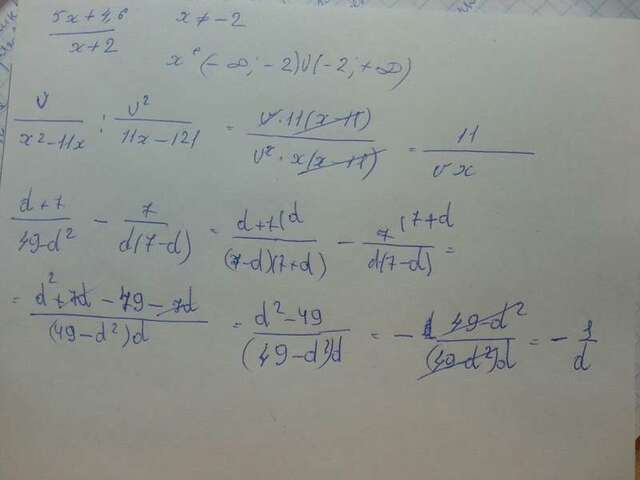 5x+4,6 / x+2    x ≠ -2
x ∈ (-∞; -2) ∪ (-2; +∞)
v / x²-11x : v² / 11x-121 = v·11(x-11) / v²·x(x-11) = 11 / vx
d+7 / 49-d² - 7 / d(7-d) = d+7 (d / (7-d)(7+d) - 7 (7+d / d(7-d) =
= d²+7d-49-7d / (49-d²)d = d²-49 / (49-d²)d = - 49-d² / (49-d²)d = - 1 / d